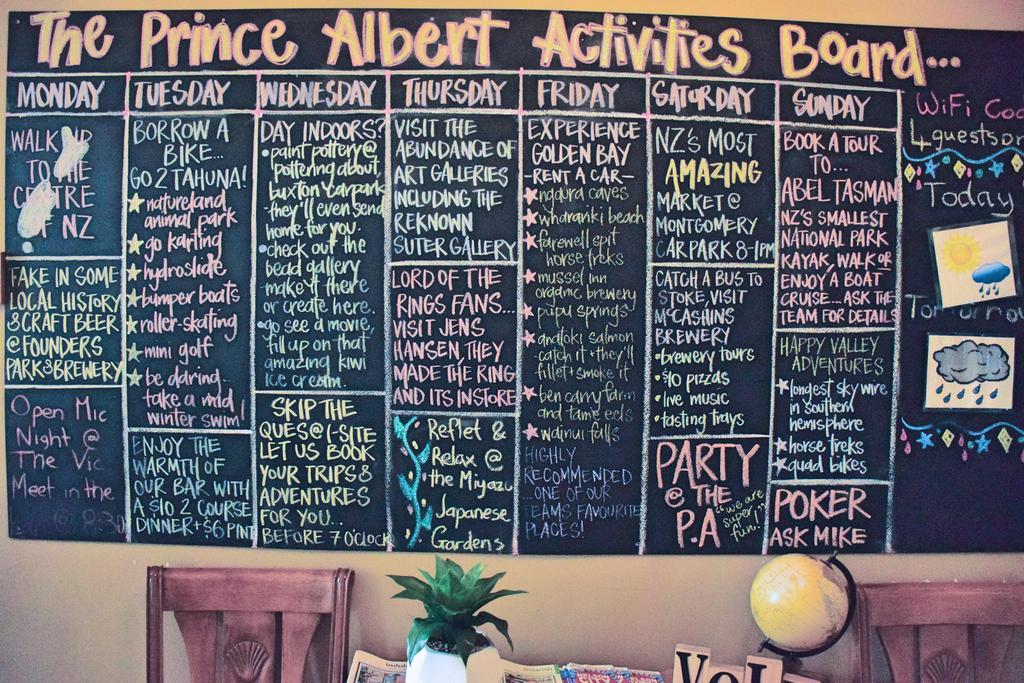 The Prince Albert Activities Board...
MONDAY
WALK UP
TO THE
CENTRE
OF NZ
TAKE IN SOME
LOCAL HISTORY
& CRAFT BEER
@ FOUNDERS
PARK & BREWERY
Open Mic
Night @
The Vic
Meet in the
8:30
TUESDAY
BORROW A
BIKE...
GO 2 TAHUNA!
natureland
animal park
go karting
hydroslide
bumper boats
roller-skating
mini golf
be daring...
take a mid
winter swim!
ENJOY THE
WARMTH OF
OUR BAR WITH
A $10 2 COURSE
DINNER + $6 PINT
WEDNESDAY
DAY INDOORS?
• paint pottery @
pottering about
buxton carpark
they'll even send
home for you.
• check out the
bead gallery
make it there
or create here.
• go see a movie,
fill up on that
amazing kiwi
ice cream.
SKIP THE
QUES @ I-SITE
LET US BOOK
YOUR TRIPS &
ADVENTURES
FOR YOU...
BEFORE 7 O'CLOCK
THURSDAY
VISIT THE
ABUNDANCE OF
ART GALLERIES
INCLUDING THE
REKNOWN
SUTER GALLERY
LORD OF THE
RINGS FANS...
VISIT JENS
HANSEN, THEY
MADE THE RING
AND ITS INSTORE
Reflet &
Relax @
the Miyazu
Japanese
Gardens
FRIDAY
EXPERIENCE
GOLDEN BAY
-RENT A CAR-
ngarua caves
wharariki beach
farewell spit
horse treks
mussel inn
organic brewery
pupu springs
anatoki salmon
catch it + they'll
fillet + smoke it
bencarri farm
and tame eels
wainui falls
HIGHLY
RECOMMENDED
...ONE OF OUR
TEAMS FAVOURITE
PLACES!
SATURDAY
NZ'S MOST
AMAZING
MARKET @
MONTGOMERY
CARPARK 8-1PM
CATCH A BUS TO
STOKE, VISIT
McCASHINS
BREWERY
• brewery tours
• $10 pizzas
• live music
• tasting trays
PARTY
@ THE
P.A
"we are
super
fun."
SUNDAY
BOOK A TOUR
TO...
ABEL TASMAN
NZ'S SMALLEST
NATIONAL PARK
KAYAK, WALK OR
ENJOY A BOAT
CRUISE... ASK THE
TEAM FOR DETAILS
HAPPY VALLEY
ADVENTURES
longest sky wire
in southern
hemisphere
horse treks
quad bikes
POKER
ASK MIKE
WiFi Co
4guestson
Today
Tomorrow
VOL